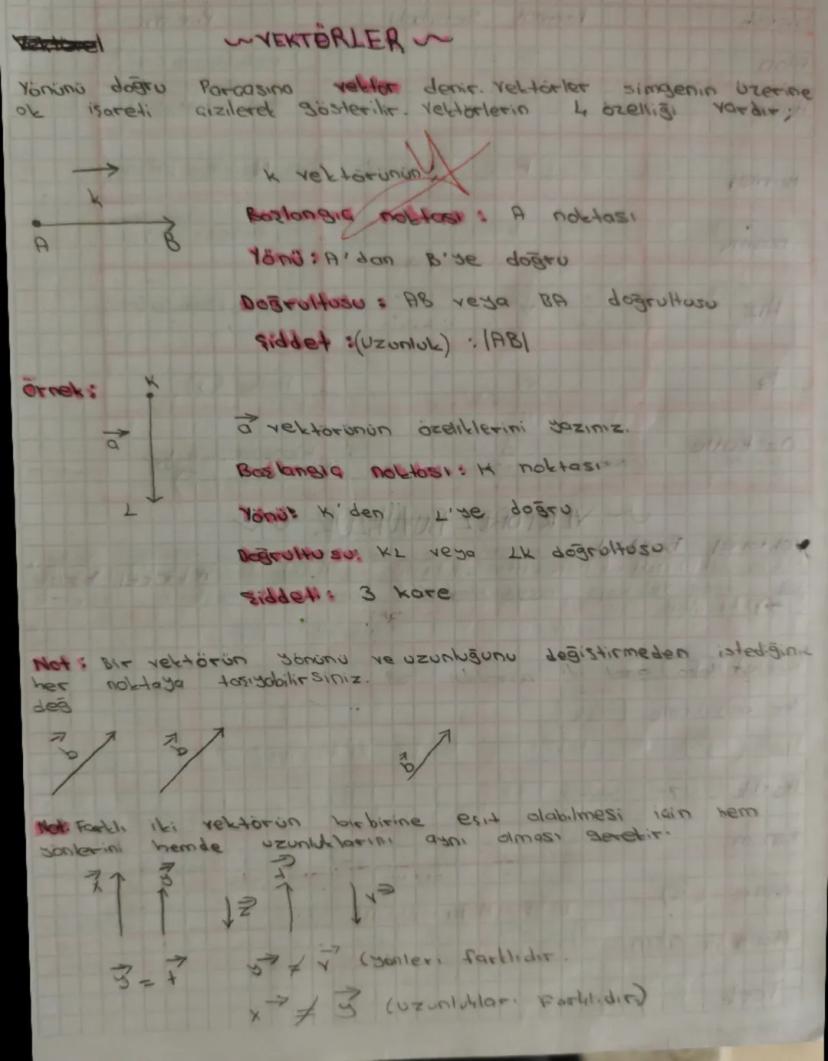 ~VEKTÖRLER~
Yönünü doğru Parçasına vektör denir. Vektörler simgenin üzerine
ok işareti çizilerek gösterilir. Vektörlerin 4 özelliği vardır;
k vektörünün
k
Başlangıç noktası : A noktası
A B
Yönü : A'dan B'ye doğru
Doğrultusu : AB veya BA doğrultusu
Şiddet :(Uzunluk) : |AB|
Örnek :
K
a
a vektörünün özeliklerini yazınız.
Başlangıç noktası : K noktası
L
Yönü: K'den L'ye doğru
Doğrultusu: KL veya LK doğrultusu
Şiddeti: 3 kare
Not : Bir vektörün yönünü ve uzunluğunu değiştirmeden istediğiniz
her noktaya taşıyabilirsiniz.
değ
b b b
Not: Farklı iki vektörün birbirine eşit olabilmesi için hem
yönlerini hemde uzunluklarını aynı olması gerekir.
x y z t v
y = t
y ≠ v (yönleri farklıdır.
x ≠ y (uzunlukları farklıdır)